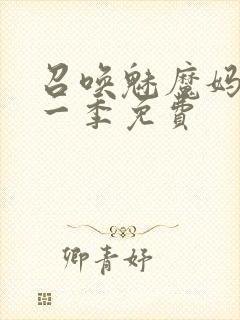 召唤魅魔妈
一季免费
卿青妤